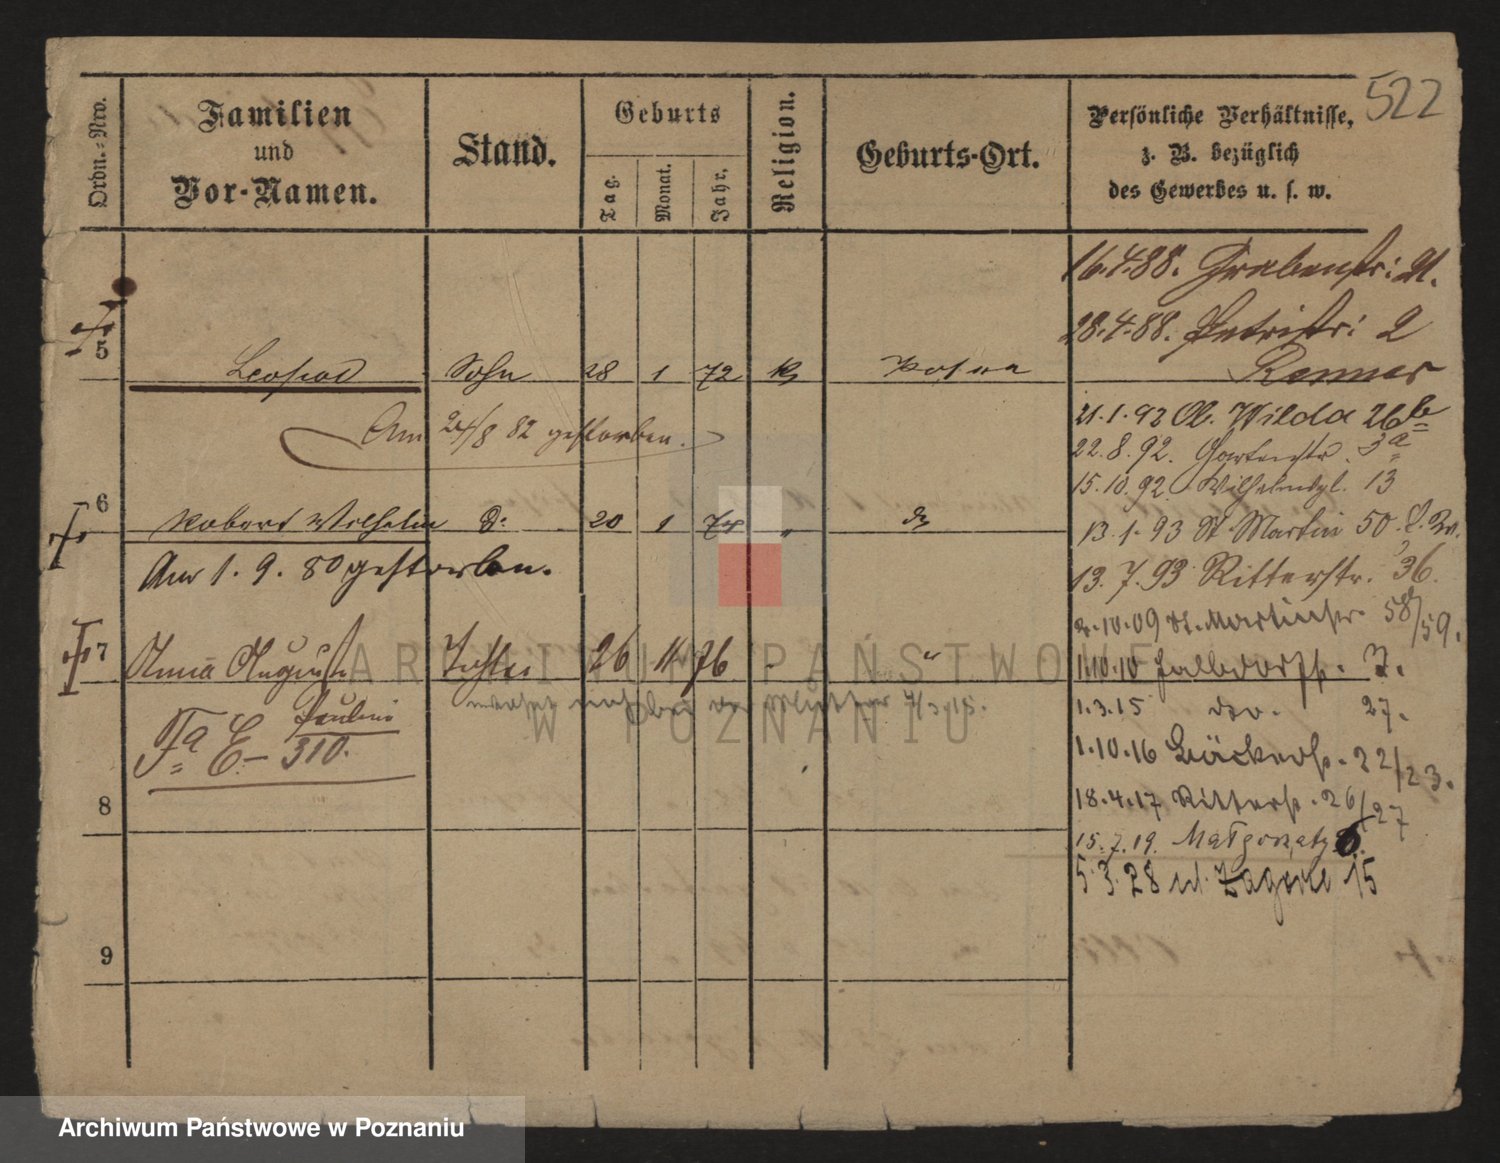 522
Ordn.-Nro.
Familien
und
Vor-Namen.
Stand.
Geburts
Tag.
Monat.
Jahr.
Religion.
Geburts-Ort.
Persönliche Verhältnisse,
z. B. bezüglich
des Gewerbes u. s. w.
16.4.88. Grabenstr: 21.
28.4.88. Petristr: 2
5 Leopold Sohn 28 1 72 k Posen
Am 24/8 82 gestorben.
21.1.92 Ob. Wilda 26b
22.8.92. Gartenstr. 3a
15.10.92 Wilhelmspl. 13
6 Robert Wilhelm do 20 1 74 " do
13.1.93 St Martin 50
Am 1.9.80 gestorben.
13.7.93 Ritterstr. 36.
2.10.09 St. Martinstr. 58/59.
7 Anna Auguste Tochter 26 11 76 - "
1.10.10 Halbdorfstr. 7.
Pauline
Fa E – 310.
7/3.15.
1.3.15 do. 27.
1.10.16 Bäckerstr. 22/23.
18.4.17 Ritterstr. 26/27
8
15.7.19. Małgorzaty 6.
5.3.28 ul. Zagórze 15
9
ARCHIWUM PAŃSTWOWE
W POZNANIU
Archiwum Państwowe w Poznaniu